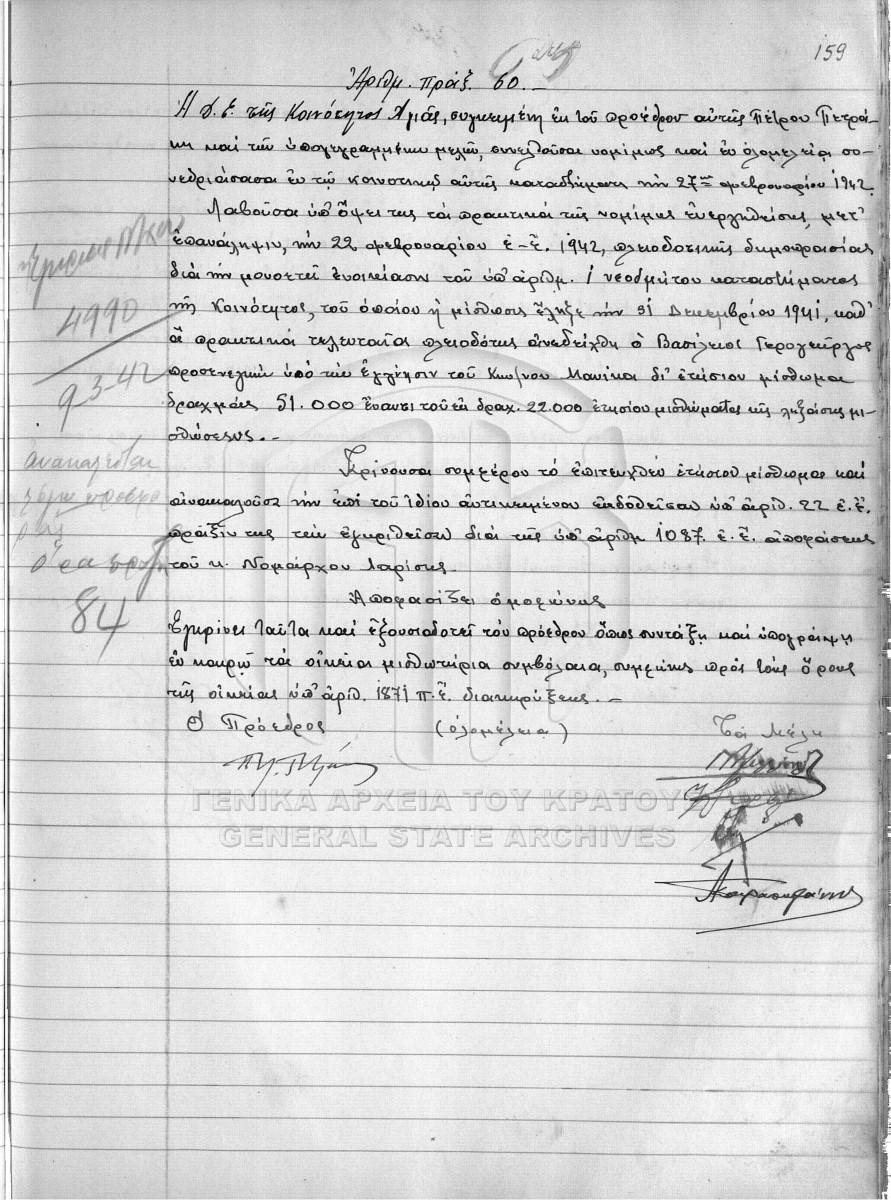 159
Ἀριθμ. πράξ. 60.-
Ἡ Δ.Ε. τῆς Κοινότητος Ἁγιᾶς, συγκειμένη ἐκ τοῦ προέδρου αὐτῆς Πέτρου Πετρά-
κη καὶ τῶν ὑπογεγραμμένων μελῶν, συνελθοῦσα νομίμως καὶ ἐν ὁλομελείᾳ συ-
νεδριάσασα ἐν τῷ κοινοτικῷ αὐτῆς καταστήματι τὴν 27ην φεβρουαρίου 1942
Λαβοῦσα ὑπ' ὄψει της τὰ πρακτικὰ τῆς νομίμως ἐνεργηθείσης, μετ'
ἐπανάληψιν, τὴν 22 φεβρουαρίου ἐ-ἔ. 1942, πλειοδοτικῆς δημοπρασίας
διὰ τὴν μονοετῆ ἐνοικίασιν τοῦ ὑπ' ἀριθμ. 1 νεοδμήτου καταστήματος
τῆς Κοινότητος, τοῦ ὁποίου ἡ μίσθωσις ἔληξε τὴν 31 Δεκεμβρίου 1941, καθ'
ἃ πρακτικὰ τελευταῖος πλειοδότης ἀνεδείχθη ὁ Βασίλειος Γερογεῶργος
προσενεγκὼν ὑπὸ τὴν ἐγγύησιν τοῦ Κων/νου Μανίκα δι' ἐτήσιον μίσθωμα
δραχμάς 51.000 ἔναντι τοῦ ἐκ δραχ. 22.000 ἐτησίου μισθώματος τῆς ληξάσης μι-
σθώσεως.-
Κρίνουσα συμφέρον τὸ ἐπιτευχθὲν ἐτήσιον μίσθωμα καὶ
ἀνακαλοῦσα τὴν ἐπὶ τοῦ ἰδίου ἀντικειμένου ἐκδοθεῖσαν ὑπ' ἀριθ. 22 ἐ.ἔ.
πρᾶξίν της τὴν ἐγκριθεῖσαν διὰ τῆς ὑπ' ἀριθμ 1087. ἐ.ἔ. ἀποφάσεως
τοῦ κ. Νομάρχου Λαρίσης
Ἀποφασίζει ὁμοφώνως
Ἐγκρίνει ταῦτα καὶ ἐξουσιοδοτεῖ τὸν πρόεδρον ὅπως συντάξῃ καὶ ὑπογράψῃ
ἐν καιρῷ τὰ οἰκεῖα μισθωτήρια συμβόλαια, συμφώνως πρὸς τοὺς ὅρους
τῆς οἰκείας ὑπ' ἀριθ. 1871 π.ἔ. διακηρύξεως.-
Ὁ Πρόεδρος (ὁλομέλεια) Τὰ Μέλη
4990
9-3-42
ἀνακαλεῖται
λόγῳ προσφο
ρᾶς
Ὅρα πρᾶξ
84
ΓΕΝΙΚΑ ΑΡΧΕΙΑ ΤΟΥ ΚΡΑΤΟΥΣ
GENERAL STATE ARCHIVES